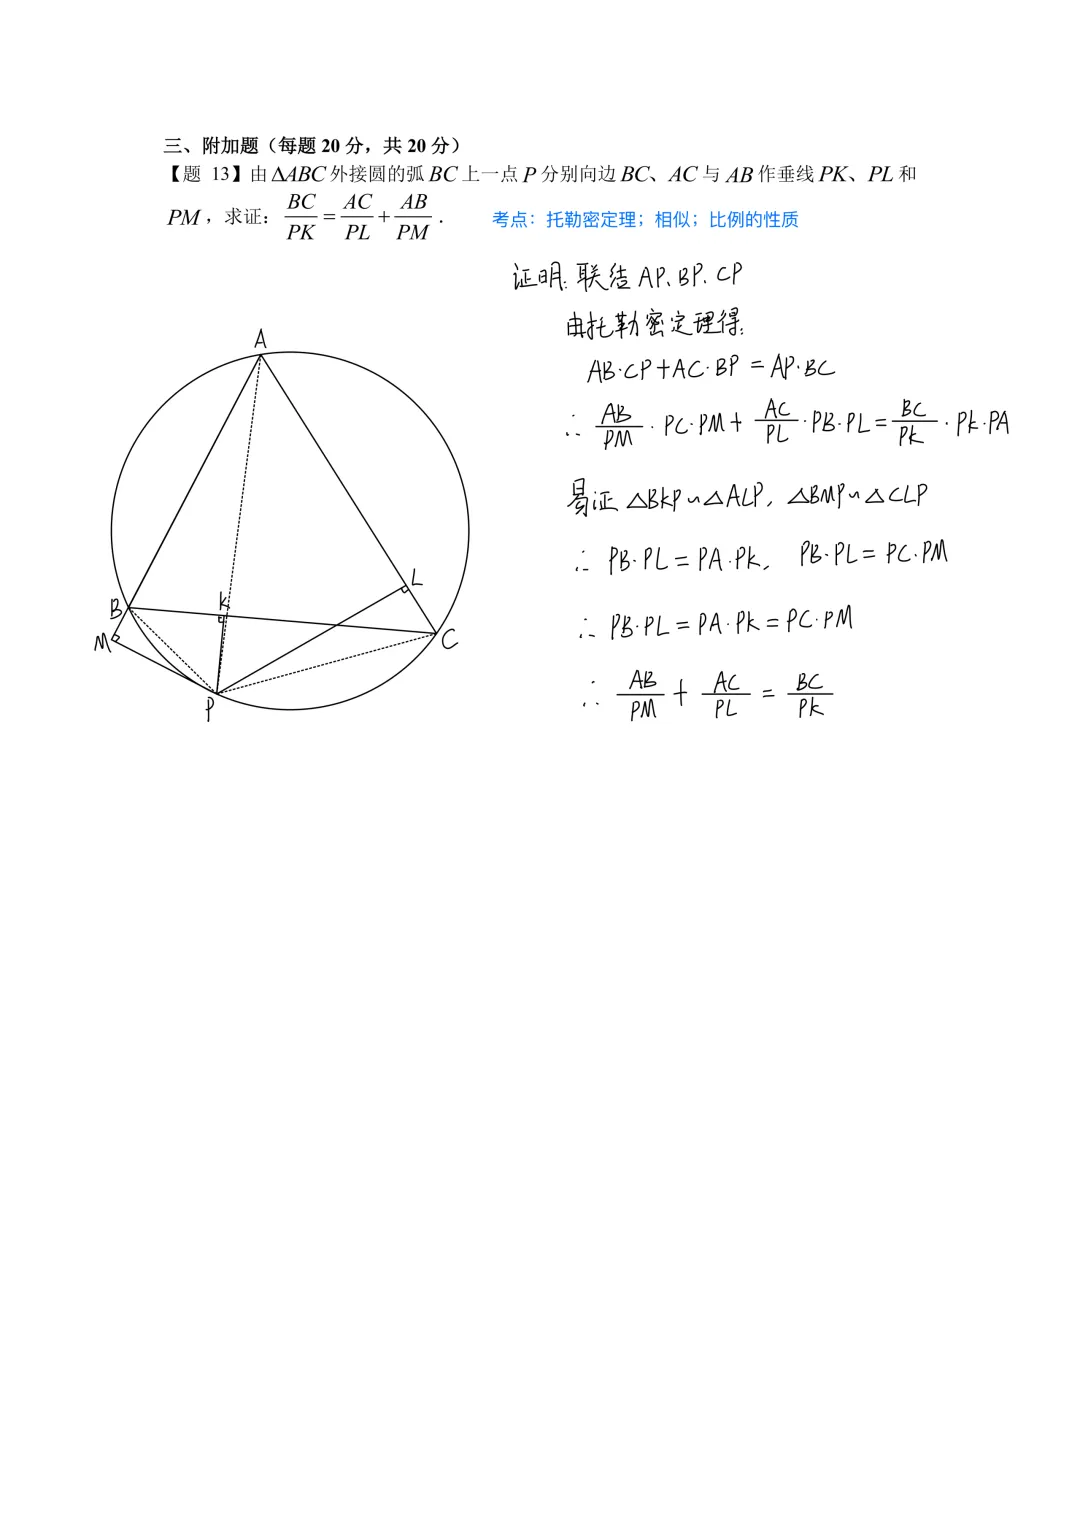 三、附加题（每题 20 分，共 20 分）
【题 13】由 ΔABC 外接圆的弧 BC 上一点 P 分别向边 BC、AC 与 AB 作垂线 PK、PL 和
PM，求证：BC/PK = AC/PL + AB/PM．
考点：托勒密定理；相似；比例的性质
证明: 联结 AP、BP、CP
由托勒密定理得:
AB·CP+AC·BP = AP·BC
∴ AB/PM · PC·PM + AC/PL · PB·PL = BC/PK · PK·PA
易证 △BKP∽△ALP, △BMP∽△CLP
∴ PB·PL = PA·PK, PB·PL = PC·PM
∴ PB·PL = PA·PK = PC·PM
∴ AB/PM + AC/PL = BC/PK
A
B
K
L
M
C
P